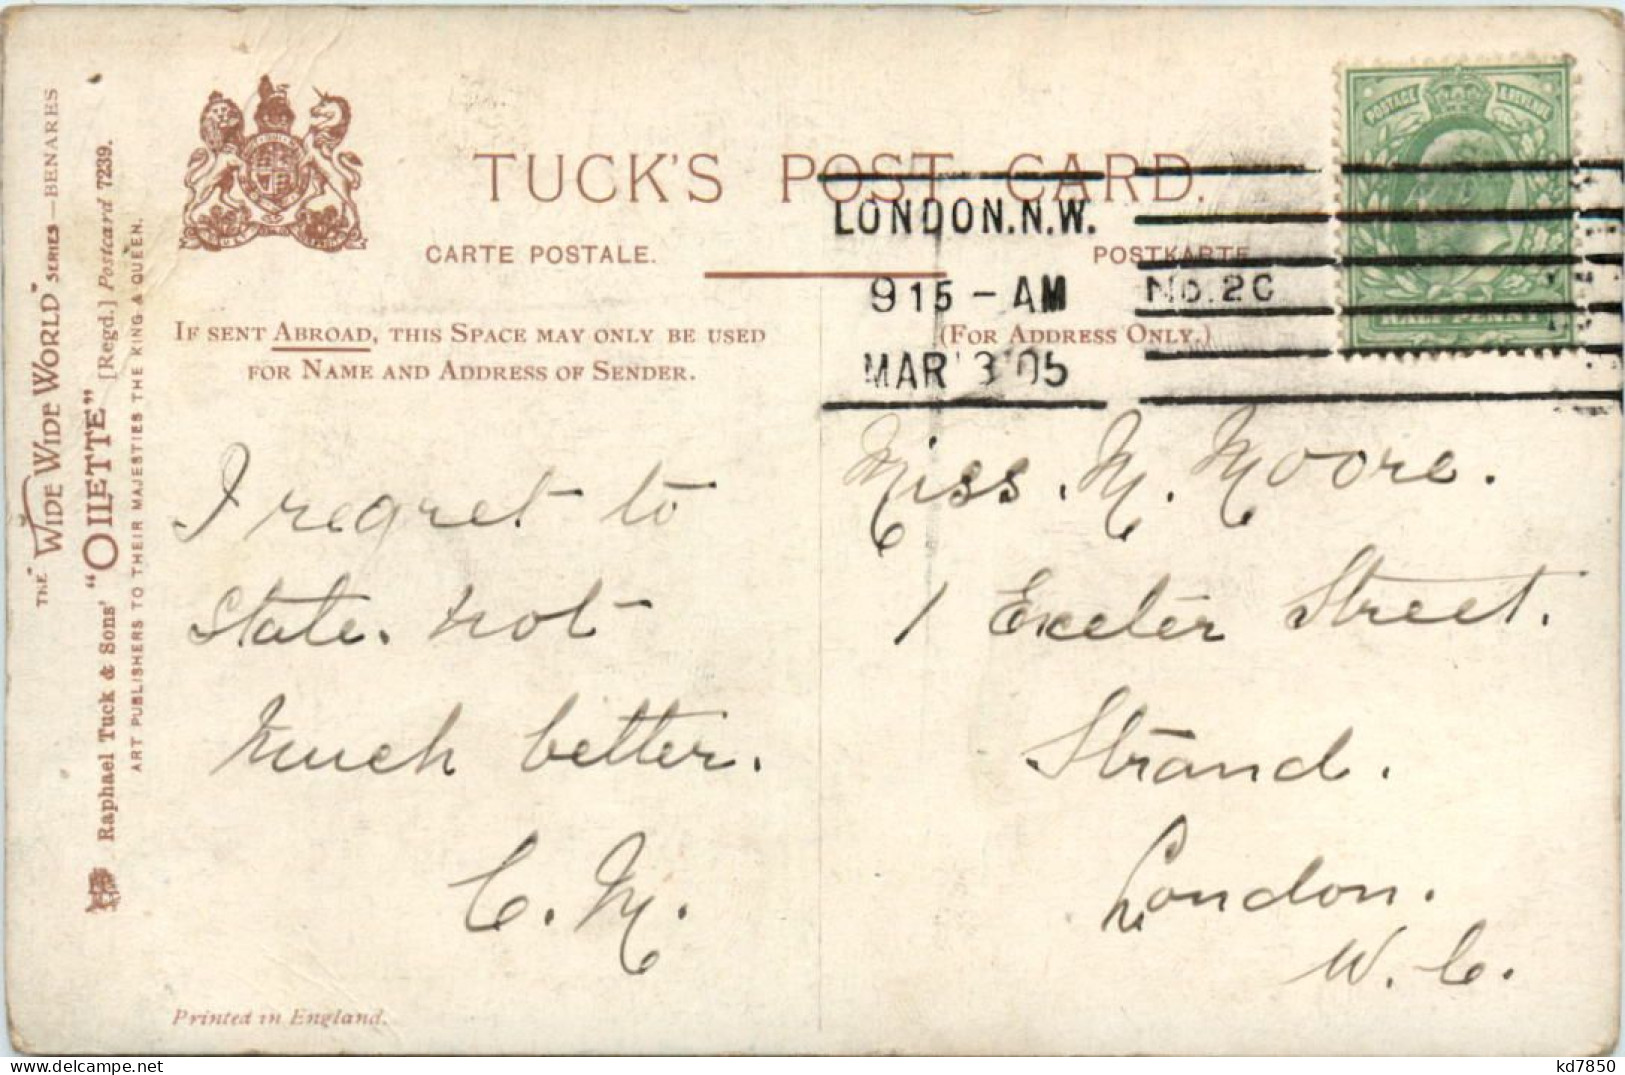 THE "WIDE WIDE WORLD" SERIES — BENARES
Raphael Tuck & Sons' "OILETTE" [Regd.] Postcard 7239.
ART PUBLISHERS TO THEIR MAJESTIES THE KING & QUEEN.
TUCK'S POST CARD.
CARTE POSTALE.
POSTKARTE
IF SENT ABROAD, THIS SPACE MAY ONLY BE USED
FOR NAME AND ADDRESS OF SENDER.
(FOR ADDRESS ONLY.)
POSTAGE & REVENUE
HALF PENNY
LONDON.N.W.
915 - AM
No. 2C
MAR 3 05
I regret to
state. not
much better.
C. M.
Miss. M. Moore.
1 Exeter Street.
Strand.
London.
W. C.
Printed in England.
www.delcampe.net
kd7850